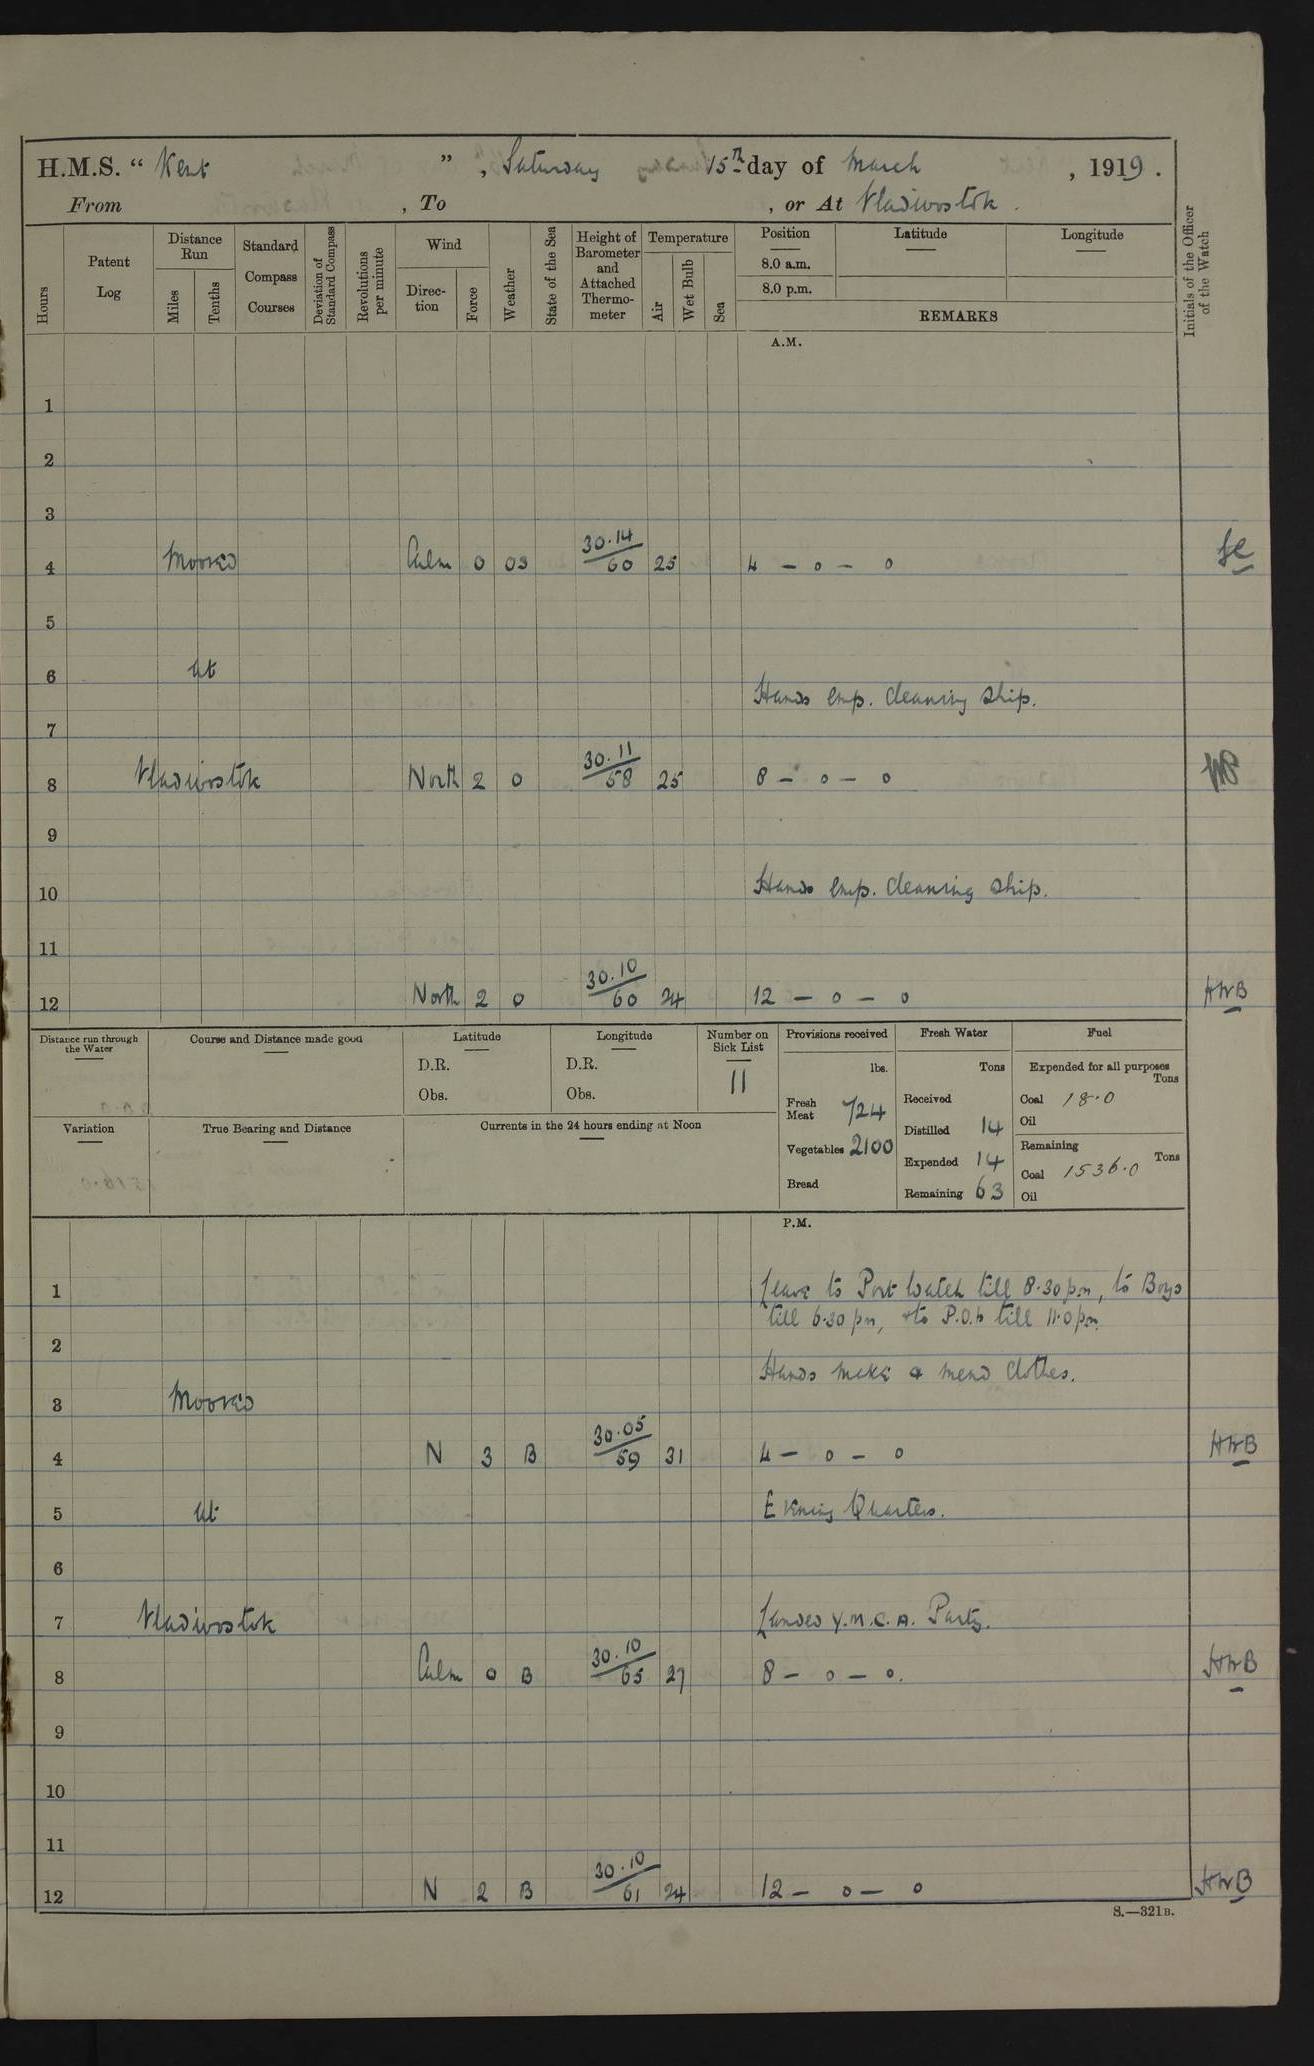 H.M.S. “ Kent ” , Saturday 15th day of March , 1919 .
From , To , or At Vladivostok .
Hours
Patent Log
Distance Run
Miles
Tenths
Standard Compass Courses
Deviation of Standard Compass
Revolutions per minute
Wind
Direction
Force
Weather
State of the Sea
Height of Barometer and Attached Thermometer
Temperature
Air
Wet Bulb
Sea
Position
8.0 a.m.
8.0 p.m.
Latitude
Longitude
REMARKS
Initials of the Officer of the Watch
A.M.
1
2
3
4 Moored Calm 0 OS 30.14/60 25 4 – 0 – 0
5
6 at
Hands emp. cleaning ship.
7
8 Vladivostok North 2 O 30.11/58 25 8 – 0 – 0
9
10 Hands emp. cleaning ship.
11
12 North 2 O 30.10/60 24 12 – 0 – 0 HWB
Distance run through the Water
Course and Distance made good
Latitude
D.R.
Obs.
Longitude
D.R.
Obs.
Number on Sick List
11
Provisions received
lbs.
Fresh Meat 724
Vegetables 2100
Bread
Fresh Water
Tons
Received
Distilled 14
Expended 14
Remaining 63
Fuel
Expended for all purposes
Tons
Coal 18.0
Oil
Remaining
Tons
Coal 1536.0
Oil
Variation
True Bearing and Distance
Currents in the 24 hours ending at Noon
P.M.
1 Leave to Port Watch till 8.30 pm, to Boys
till 6.30 pm, & to P.O.s till 11.0 pm.
2
Hands make & mend clothes.
3 Moored
4 N 3 B 30.05/59 31 4 – 0 – 0 HWB
5 at Evening Quarters.
6
7 Vladivostok Landed Y.M.C.A. Party.
8 Calm 0 B 30.10/65 27 8 – 0 – 0. HWB
9
10
11
12 N 2 B 30.10/61 24 12 – 0 – 0 HWB
S.—321B.